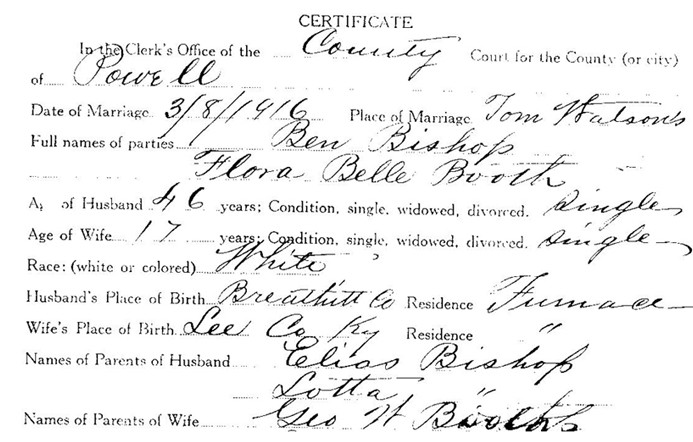 CERTIFICATE
In the Clerk's Office of the County Court for the County (or city)
of Powell
Date of Marriage 3/8/1916 Place of Marriage Tom Watsons
Full names of parties Ben Bishop
Flora Belle Booth
A, of Husband 46 years; Condition, single, widowed, divorced. Single
Age of Wife 17 years; Condition, single, widowed, divorced. Single
Race: (white or colored) White
Husband's Place of Birth Breathitt Co Residence Furnace
Wife's Place of Birth Lee Co Ky Residence "
Names of Parents of Husband Elias Bishop
Lotta "
Names of Parents of Wife Geo W Booth